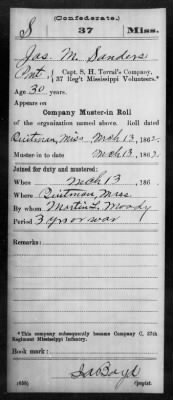 (Confederate.)
S 37 Miss.
Jas. M. Sanders
Pvt., Capt. S. H. Terral's Company,
37 Reg't Mississippi Volunteers.*
Age 30 years.
Appears on
Company Muster-in Roll
of the organization named above. Roll dated
Quitman, Miss Mch 13, 1862.
Muster-in to date Mch 13, 1862.
Joined for duty and mustered:
When Mch 13, 186
Where Quitman, Miss.
By whom Martin L. Moody
Period 3 yrs or war
Remarks:
*This company subsequently became Company C, 37th
Regiment Mississippi Infantry.
Book mark:
Boyd
(656) Copyist.